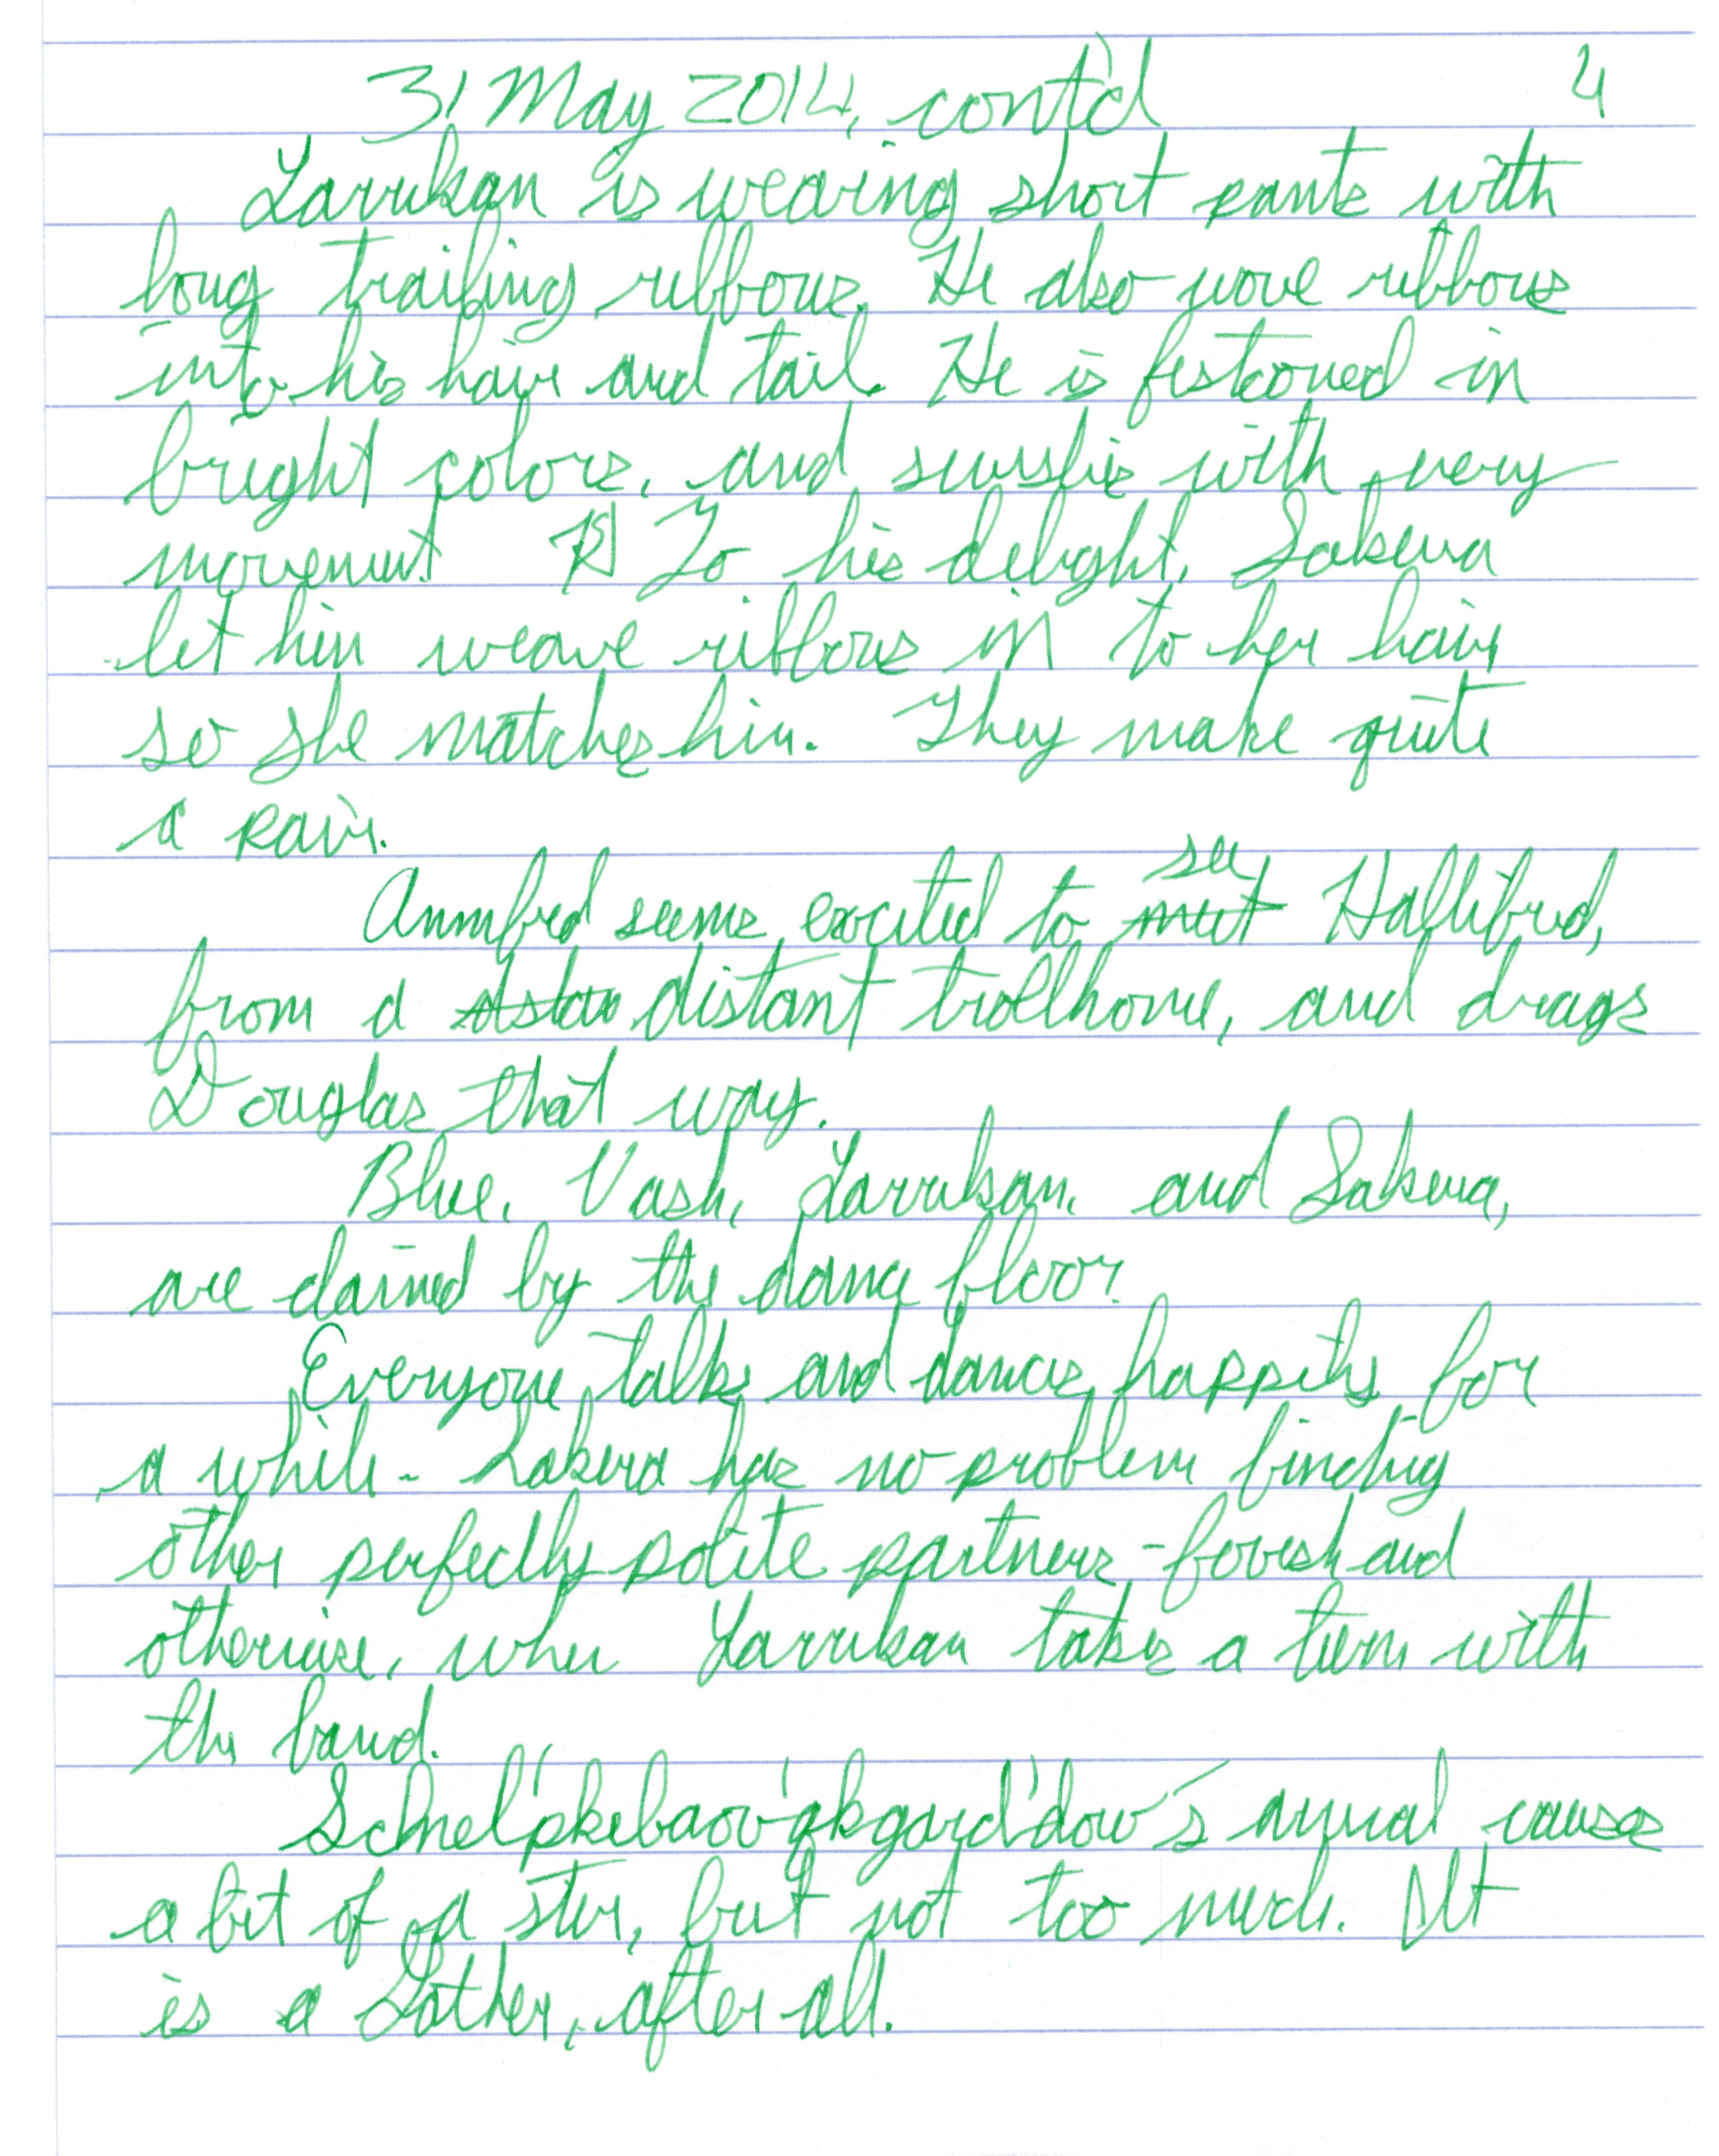 31 May 2014, cont'd 4
Larukan is wearing short pants with
long trailing ribbons. He also wove ribbons
into his hair and tail. He is festooned in
bright colors, and swishes with every
movement ¶ To his delight, Sakena
let him weave ribbons in to her hair,
so she matches him. They make quite
a pair.
Annfred seems excited to meet see Hallifred,
from a distan distant trollhome, and drags
Douglas that way.
Blue, Vash, Larukan, and Sakena,
are claimed by the dance floor.
Everyone talks and dances happily for
a while. Sakena has no problem finding
other perfectly polite partners - fovesh and
otherwise, when Larukan takes a turn with
the band.
arrival causes
a bit of a stir, but not too much. It
is a Gather, after all.